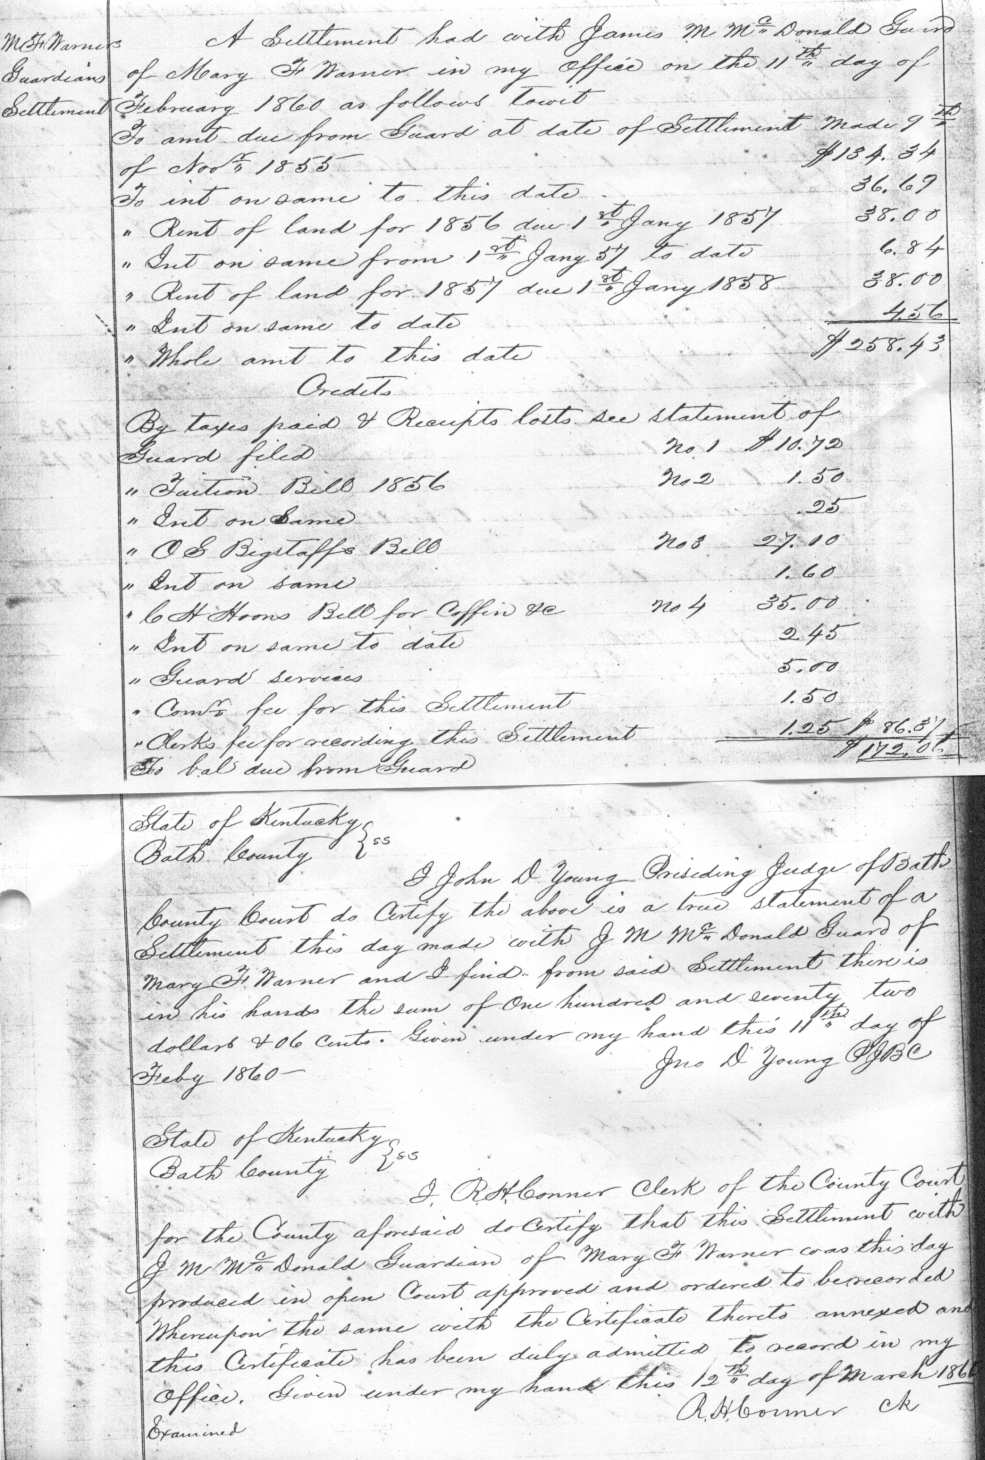 M. F. Warners
Guardians
Settlement
A Settlement had with James M McDonald Guard
of Mary F Warner in my Office on the 11th day of
February 1860 as follows towit
To amt due from Guard at date of Settlement made 9th
of Novr 1855 $134.34
To int on same to this date 36.69
" Rent of land for 1856 due 1st Jany 1857 38.00
" Int on same from 1st Jany 57 to date 6.84
" Rent of land for 1857 due 1st Jany 1858 38.00
" Int on same to date 4.56
" Whole amt to this date $258.43
Credits
By taxes paid & Receipts losts see statement of
Guard filed No. 1 $10.72
" Tuition Bill 1856 No 2 1.50
" Int on Same .25
" O S Bigstaffs Bill No 3 27.10
" Int on same 1.60
" C H Hoons Bill for Coffin &c No 4 35.00
" Int on same to date 2.45
" Guard services 5.00
" Comrs fee for this Settlement 1.50
" Clerks fee for recording this Settlement 1.25 $86.37
To bal due from Guard $172.06
State of Kentucky
Bath County } ss
I John D Young Presiding Judge of Bath
County Court do Certify the above is a true statement of a
Settlement this day made with J M McDonald Guard of
Mary F Warner and I find from said Settlement there is
in his hands the sum of One hundred and seventy two
dollars & 06 cents. Given under my hand this 11th day of
Feby 1860 — Jno D Young PJBC
State of Kentucky
Bath County } ss
I, R. H Conner Clerk of the County Court
for the County aforesaid do Certify that this Settlement with
J M McDonald Guardian of Mary F Warner was this day
produced in open Court approved and ordered to be recorded
Whereupon the same with the Certificate thereto annexed and
this Certificate has been duly admitted to record in my
Office. Given under my hand this 12th day of March 1860
R. H. Conner Ck
Examined